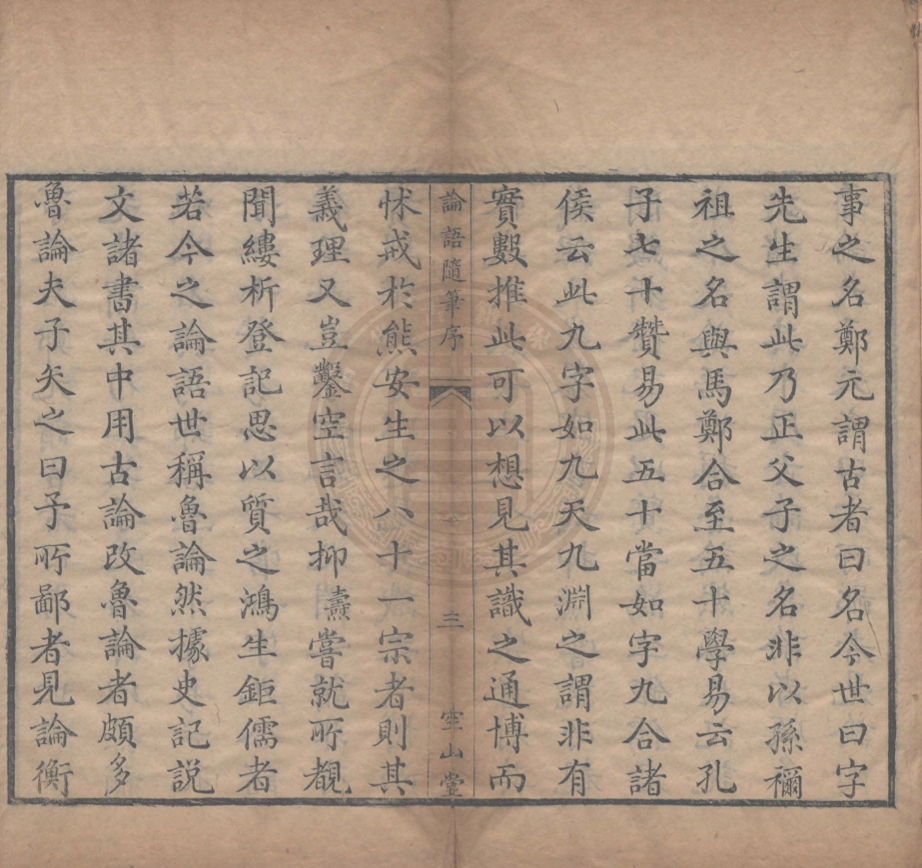 事之名鄭元謂古者曰名今世曰字
先生謂此乃正父子之名非以孫禰
祖之名與馬鄭合至五十學易云孔
子七十贊易此五十當如字九合諸
侯云此九字如九天九淵之謂非有
實數推此可以想見其識之通博而
論語隨筆序
三
空山堂
怵戒於熊安生之八十一宗者則其
義理又豈鑿空言哉抑燾嘗就所覩
聞縷析登記思以質之鴻生鉅儒者
若今之論語世稱魯論然據史記說
文諸書其中用古論改魯論者頗多
魯論夫子矢之曰予所鄙者見論衡